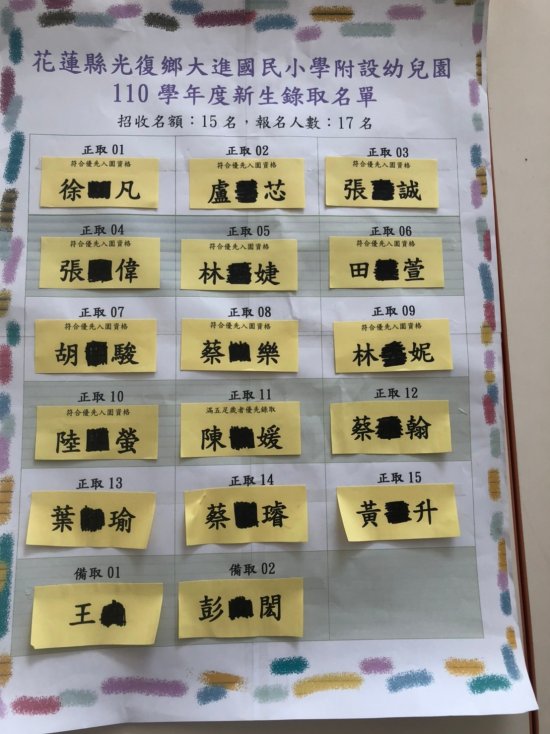 花蓮縣光復鄉大進國民小學附設幼兒園
110 學年度新生錄取名單
招收名額：15 名，報名人數：17 名
正取 01
符合優先入園資格
徐 凡
正取 02
符合優先入園資格
盧 芯
正取 03
符合優先入園資格
張 誠
正取 04
符合優先入園資格
張 偉
正取 05
符合優先入園資格
林 婕
正取 06
符合優先入園資格
田 萱
正取 07
符合優先入園資格
胡 駿
正取 08
符合優先入園資格
蔡 樂
正取 09
符合優先入園資格
林 妮
正取 10
符合優先入園資格
陸 螢
正取 11
滿五足歲者優先錄取
陳 媛
正取 12
蔡 翰
正取 13
葉 瑜
正取 14
蔡 璿
正取 15
黃 升
備取 01
王
備取 02
彭 閎